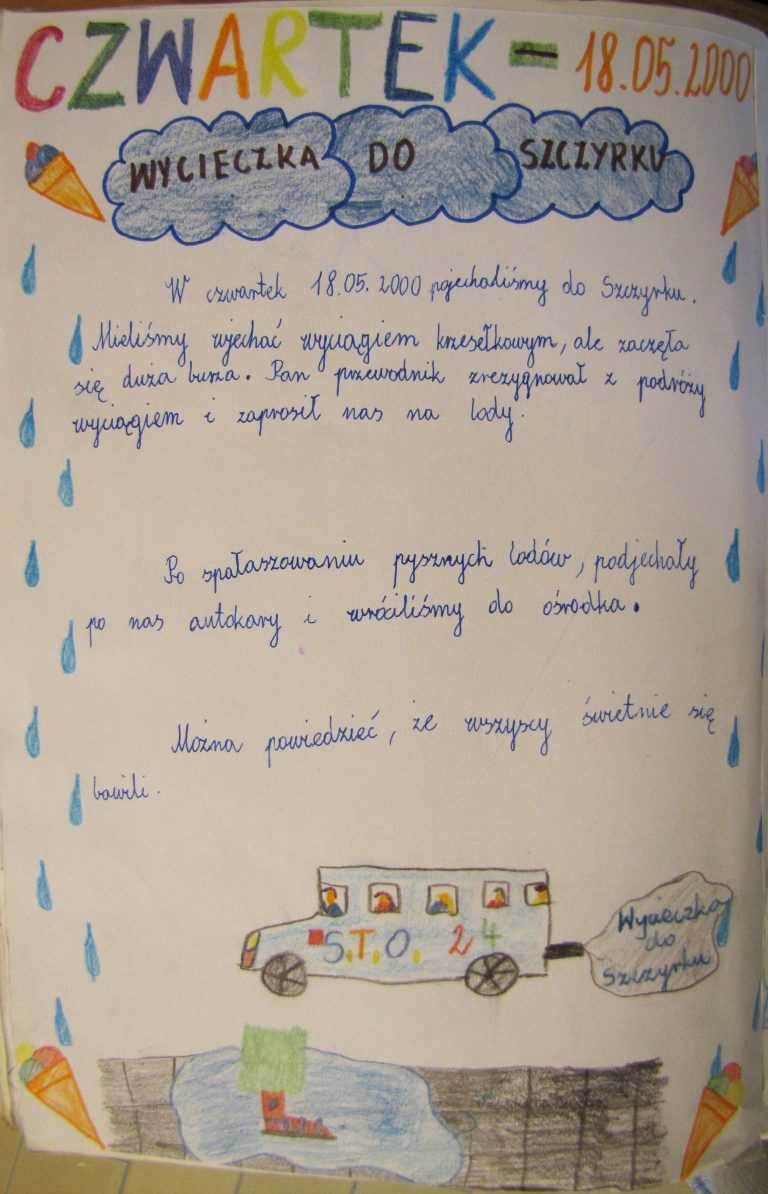 CZWARTEK - 18.05.2000
WYCIECZKA DO SZCZYRKU
W czwartek 18.05.2000 pojechaliśmy do Szczyrku.
Mieliśmy wjechać wyciągiem krzesełkowym, ale zaczęła
się duża burza. Pan przewodnik zrezygnował z podróży
wyciągiem i zaprosił nas na lody.
Po spałaszowaniu pysznych lodów, podjechały
po nas autokary i wróciliśmy do ośrodka.
Można powiedzieć, że wszyscy świetnie się
bawili.
S.T.O. 24
Wycieczka
do
Szczyrku